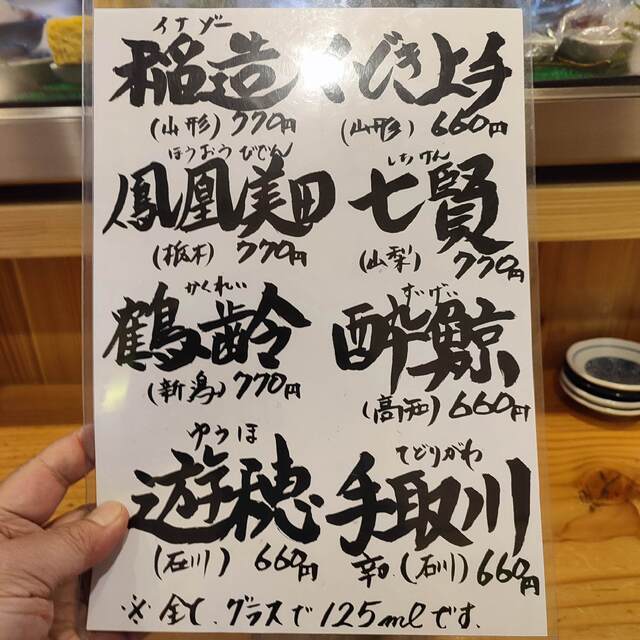 イナゾー
稲造 くどき上手
(山形) 770円 (山形) 660円
ほうおうびでん しちけん
鳳凰美田 七賢
(栃木) 770円 (山梨) 770円
かくれい すいげい
鶴齢 酔鯨
(新潟) 770円 (高知) 660円
ゆうほ てどりがわ
遊穂 手取川
(石川) 660円 辛口 (石川) 660円
※全て、グラスで125mlです。